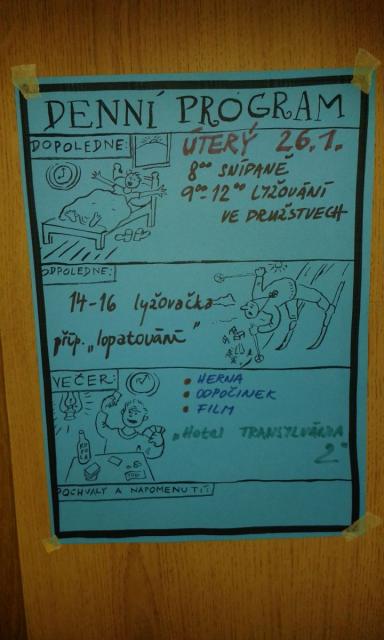 DENNÍ PROGRAM
DOPOLEDNE:
ÚTERÝ 26.1.
8⁰⁰ SNÍDANĚ
9⁰⁰-12⁰⁰ LYŽOVÁNÍ
VE DRUŽSTVECH
ODPOLEDNE:
14-16 lyžovačka
příp. „lopatování"
VEČER:
• HERNA
• ODPOČINEK
• FILM
„Hotel TRANSYLVÁNIA
2"
POCHVALY A NAPOMENUTÍ: